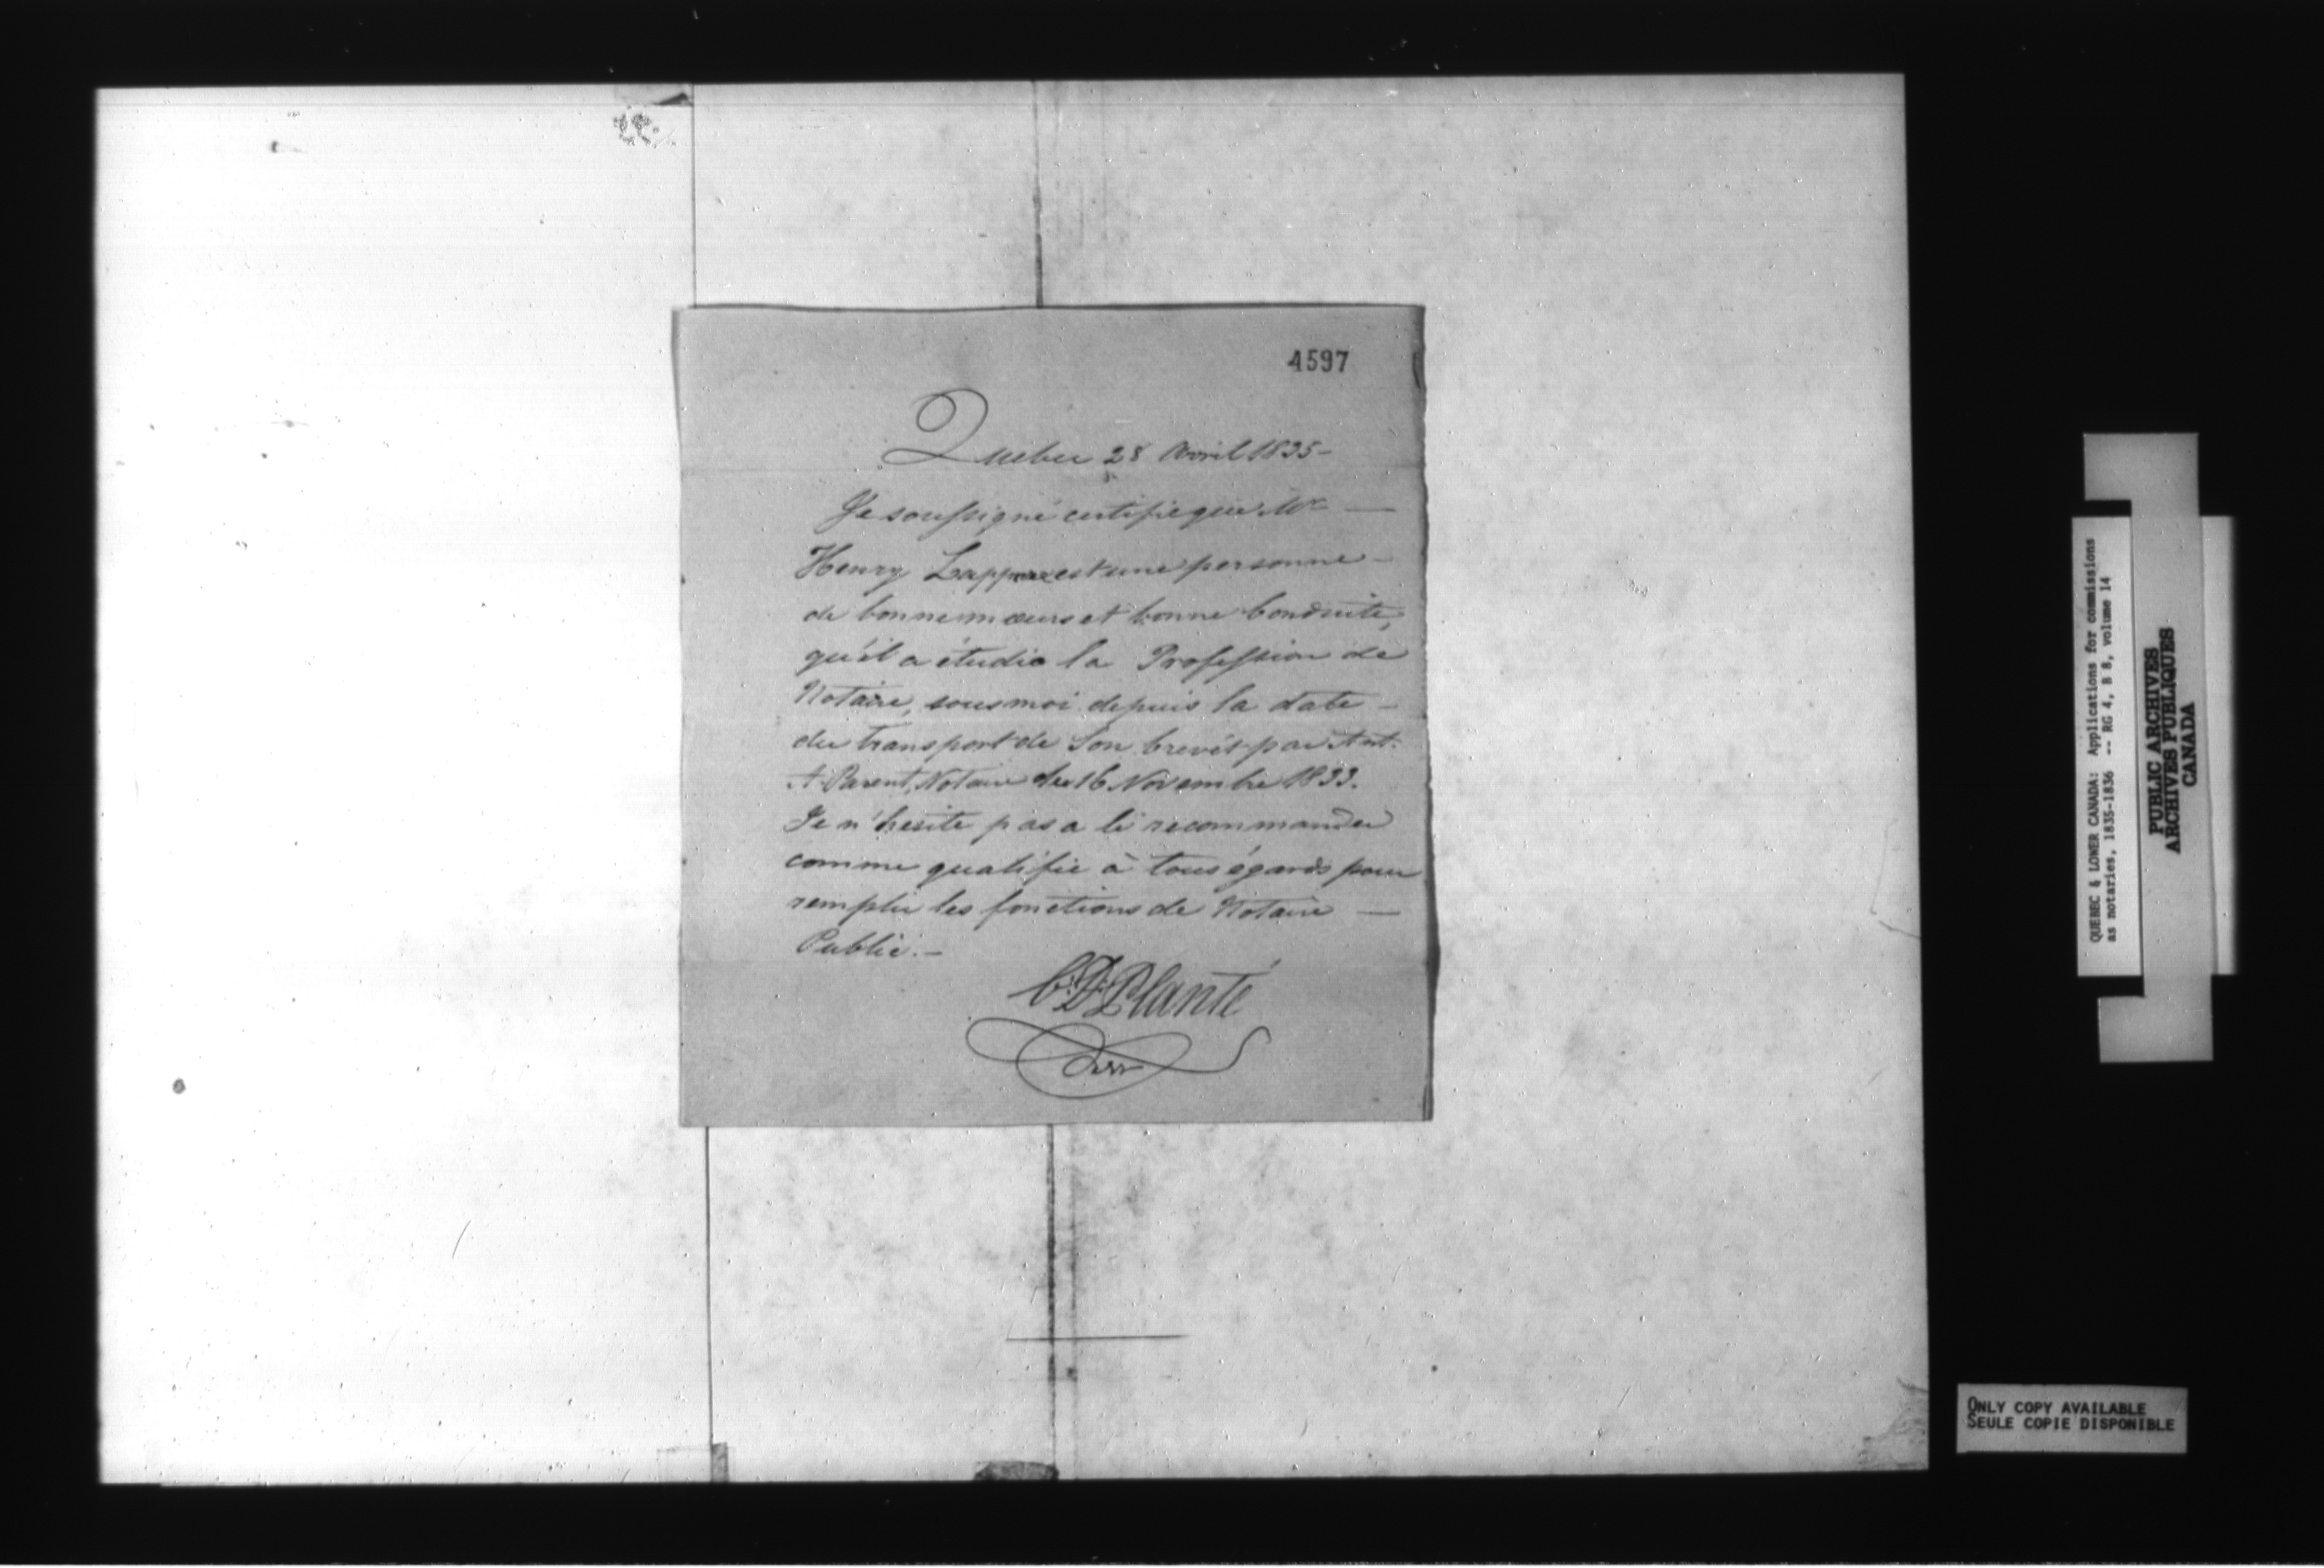 4597
Quebec 28 Avril 1835-
Je soussigné certifie que Mr —
Henry est une personne -
de bonne mœurs et bonne Conduite,
qu'il a étudié la Profession de
Notaire, sous moi depuis la date -
du transport de Son brevêt par Ant.
A. Parent, Notaire du 16 Novembre 1833.
Je n'hesite pas a le recommander
comme qualifié à tous égards pour
remplir les fonctions de Notaire —
Public.-
C. D. Planté
QUEBEC & LOWER CANADA: Applications for commissions
as notaries, 1835-1836 -- RG 4, B 8, volume 14
PUBLIC ARCHIVES
ARCHIVES PUBLIQUES
CANADA
ONLY COPY AVAILABLE
SEULE COPIE DISPONIBLE